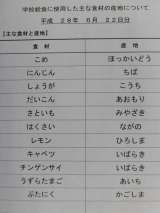 学校給食に使用した主な食材の産地について
平成 28年 6月 22日分
【主な食材と産地】
食材 産地
こめ ほっかいどう
にんじん ちば
しょうが こうち
だいこん あおもり
さといも みやざき
はくさい ながの
レモン ひろしま
キャベツ いばらき
チンゲンサイ いばらき
うずらたまご あいち
ぶたにく かごしま